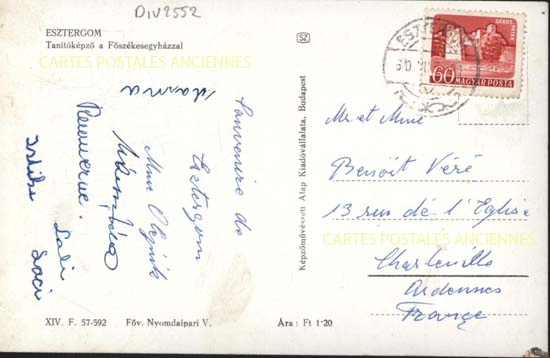 DIV2552
ESZTERGOM
Tanítóképző a Főszékesegyházzal
CARTES POSTALES ANCIENNES
Souvenire de
Esztergom
Mme
Remuerue.
Lali
Laci
XIV. F. 57-592 Főv. Nyomdaipari V. Ára: Ft 1·20
Képzőművészeti Alap Kiadóvállalata, Budapest
SZ
ESZTERGOM
60 MAGYAR POSTA
Mr et Mme
Benoît Véré
13 rue dé l'Eglise
CARTES POSTALES ANCIENNES
Charleville
Ardennes
France